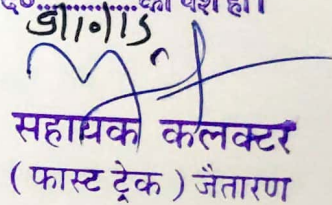 को पेश हो।
सहायक कलक्टर
( फास्ट ट्रेक ) जैतारण